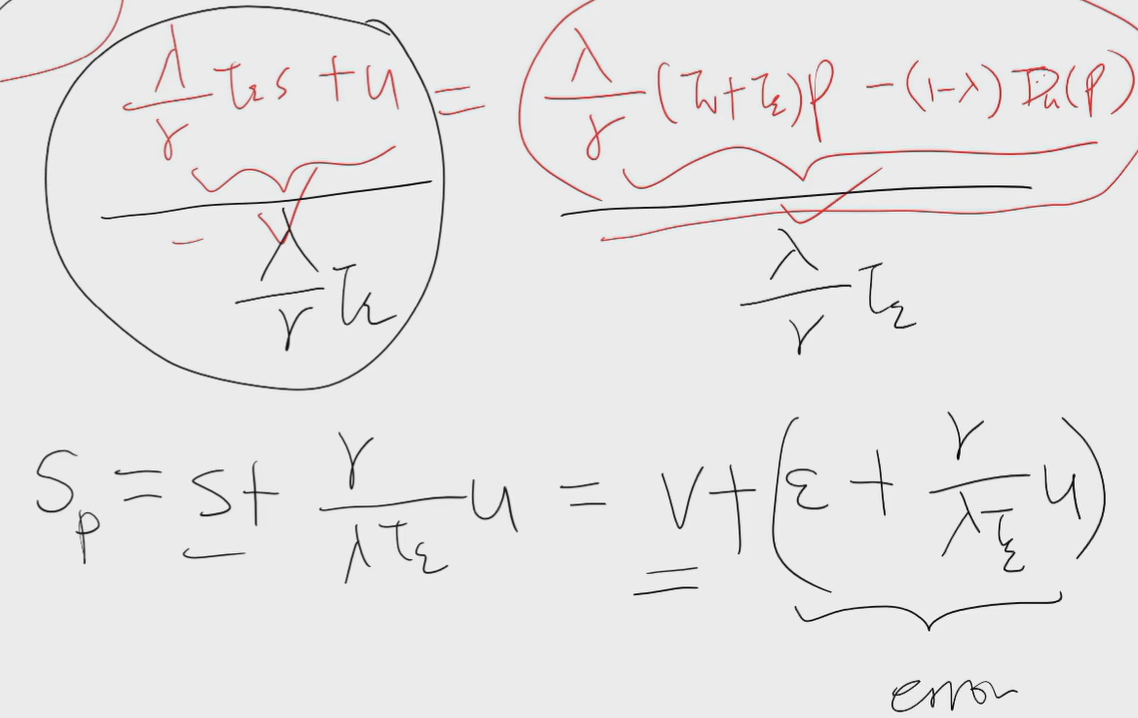 λ/γ τ_ε s + u = λ/γ (τ_v + τ_ε) p − (1−λ) D_u(p)
λ/γ τ_ε λ/γ τ_ε
S_p = s + γ/(λ τ_ε) u = v + (ε + γ/(λ τ_ε) u)
error